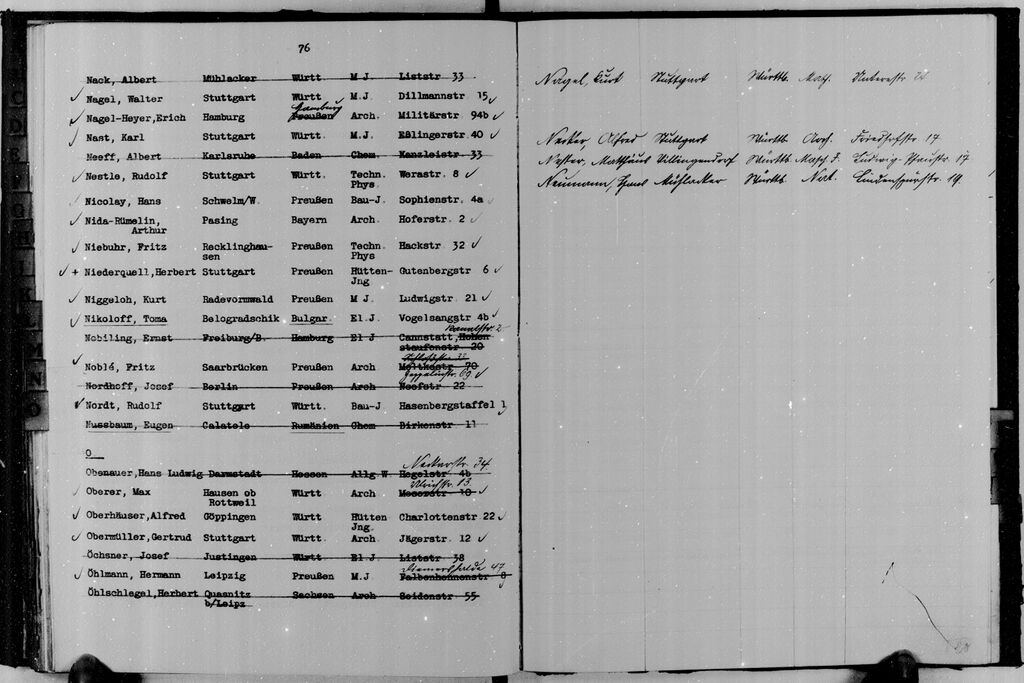 76
Nack, Albert Mühlacker Württ M.J Liststr 33
Nagel, Walter Stuttgart Württ M.J. Dillmannstr 15
Hamburg
Nagel-Heyer, Erich Hamburg Preußen Arch. Militärstr 94b
Nast, Karl Stuttgart Württ. M.J. Eßlingerstr 40
Neeff, Albert Karlsruhe Baden Chem. Kanzleistr 33
Nestle, Rudolf Stuttgart Württ. Techn. Werastr 8
Phys.
Nicolay, Hans Schwelm/W. Preußen Bau-J Sophienstr. 4a
Nida-Rümelin, Pasing Bayern Arch. Hoferstr. 2
Arthur
Niebuhr, Fritz Recklinghau- Preußen Techn. Hackstr 32
sen Phys
+ Niederquell, Herbert Stuttgart Preußen Hütten- Gutenbergstr 6
Jng
Niggeloh, Kurt Radevormwald Preußen M J. Ludwigstr 21
Nikoloff, Toma Belogradschik Bulgar. El.J. Vogelsangstr 4b
Nobiling, Ernst Freiburg/B. Hamburg El J Cannstatt, Hohen
staufenstr 20
Noblé, Fritz Saarbrücken Preußen Arch Moltkestr 70
Nordhoff, Josef Berlin Preußen Arch Neefstr 22
Nordt, Rudolf Stuttgart Württ. Bau-J Hasenbergstaffel 1
Nussbaum, Eugen Calatele Rumänien Chem Birkenstr 11
O
Neckarstr. 34
Obenauer, Hans Ludwig Darmstadt Hessen Allg.W Hegelstr 4b
Ulrichstr. 13
Oberer, Max Hausen ob Württ Arch Moserstr 10
Rottweil
Oberhäuser, Alfred Göppingen Württ Hütten Charlottenstr 22
Jng.
Obermüller, Gertrud Stuttgart Württ. Arch. Jägerstr. 12
Öchsner, Josef Justingen Württ El J Liststr 38
Öhlmann, Hermann Leipzig Preußen M.J. Falbenhennenstr 8
Öhlschlegel, Herbert Quasnitz Sachsen Arch Seidenstr 55
b/Leipz
Nagel, Kurt Stuttgart Württb. Math.
Necker, Alfred Stuttgart Württb. Arch. Friedhofstr. 17
Matthäus Villingendorf Württb. Masch. J. Ludwig
Neumann, Hans Mühlacker Württb. Nat. Lindenspürstr. 19